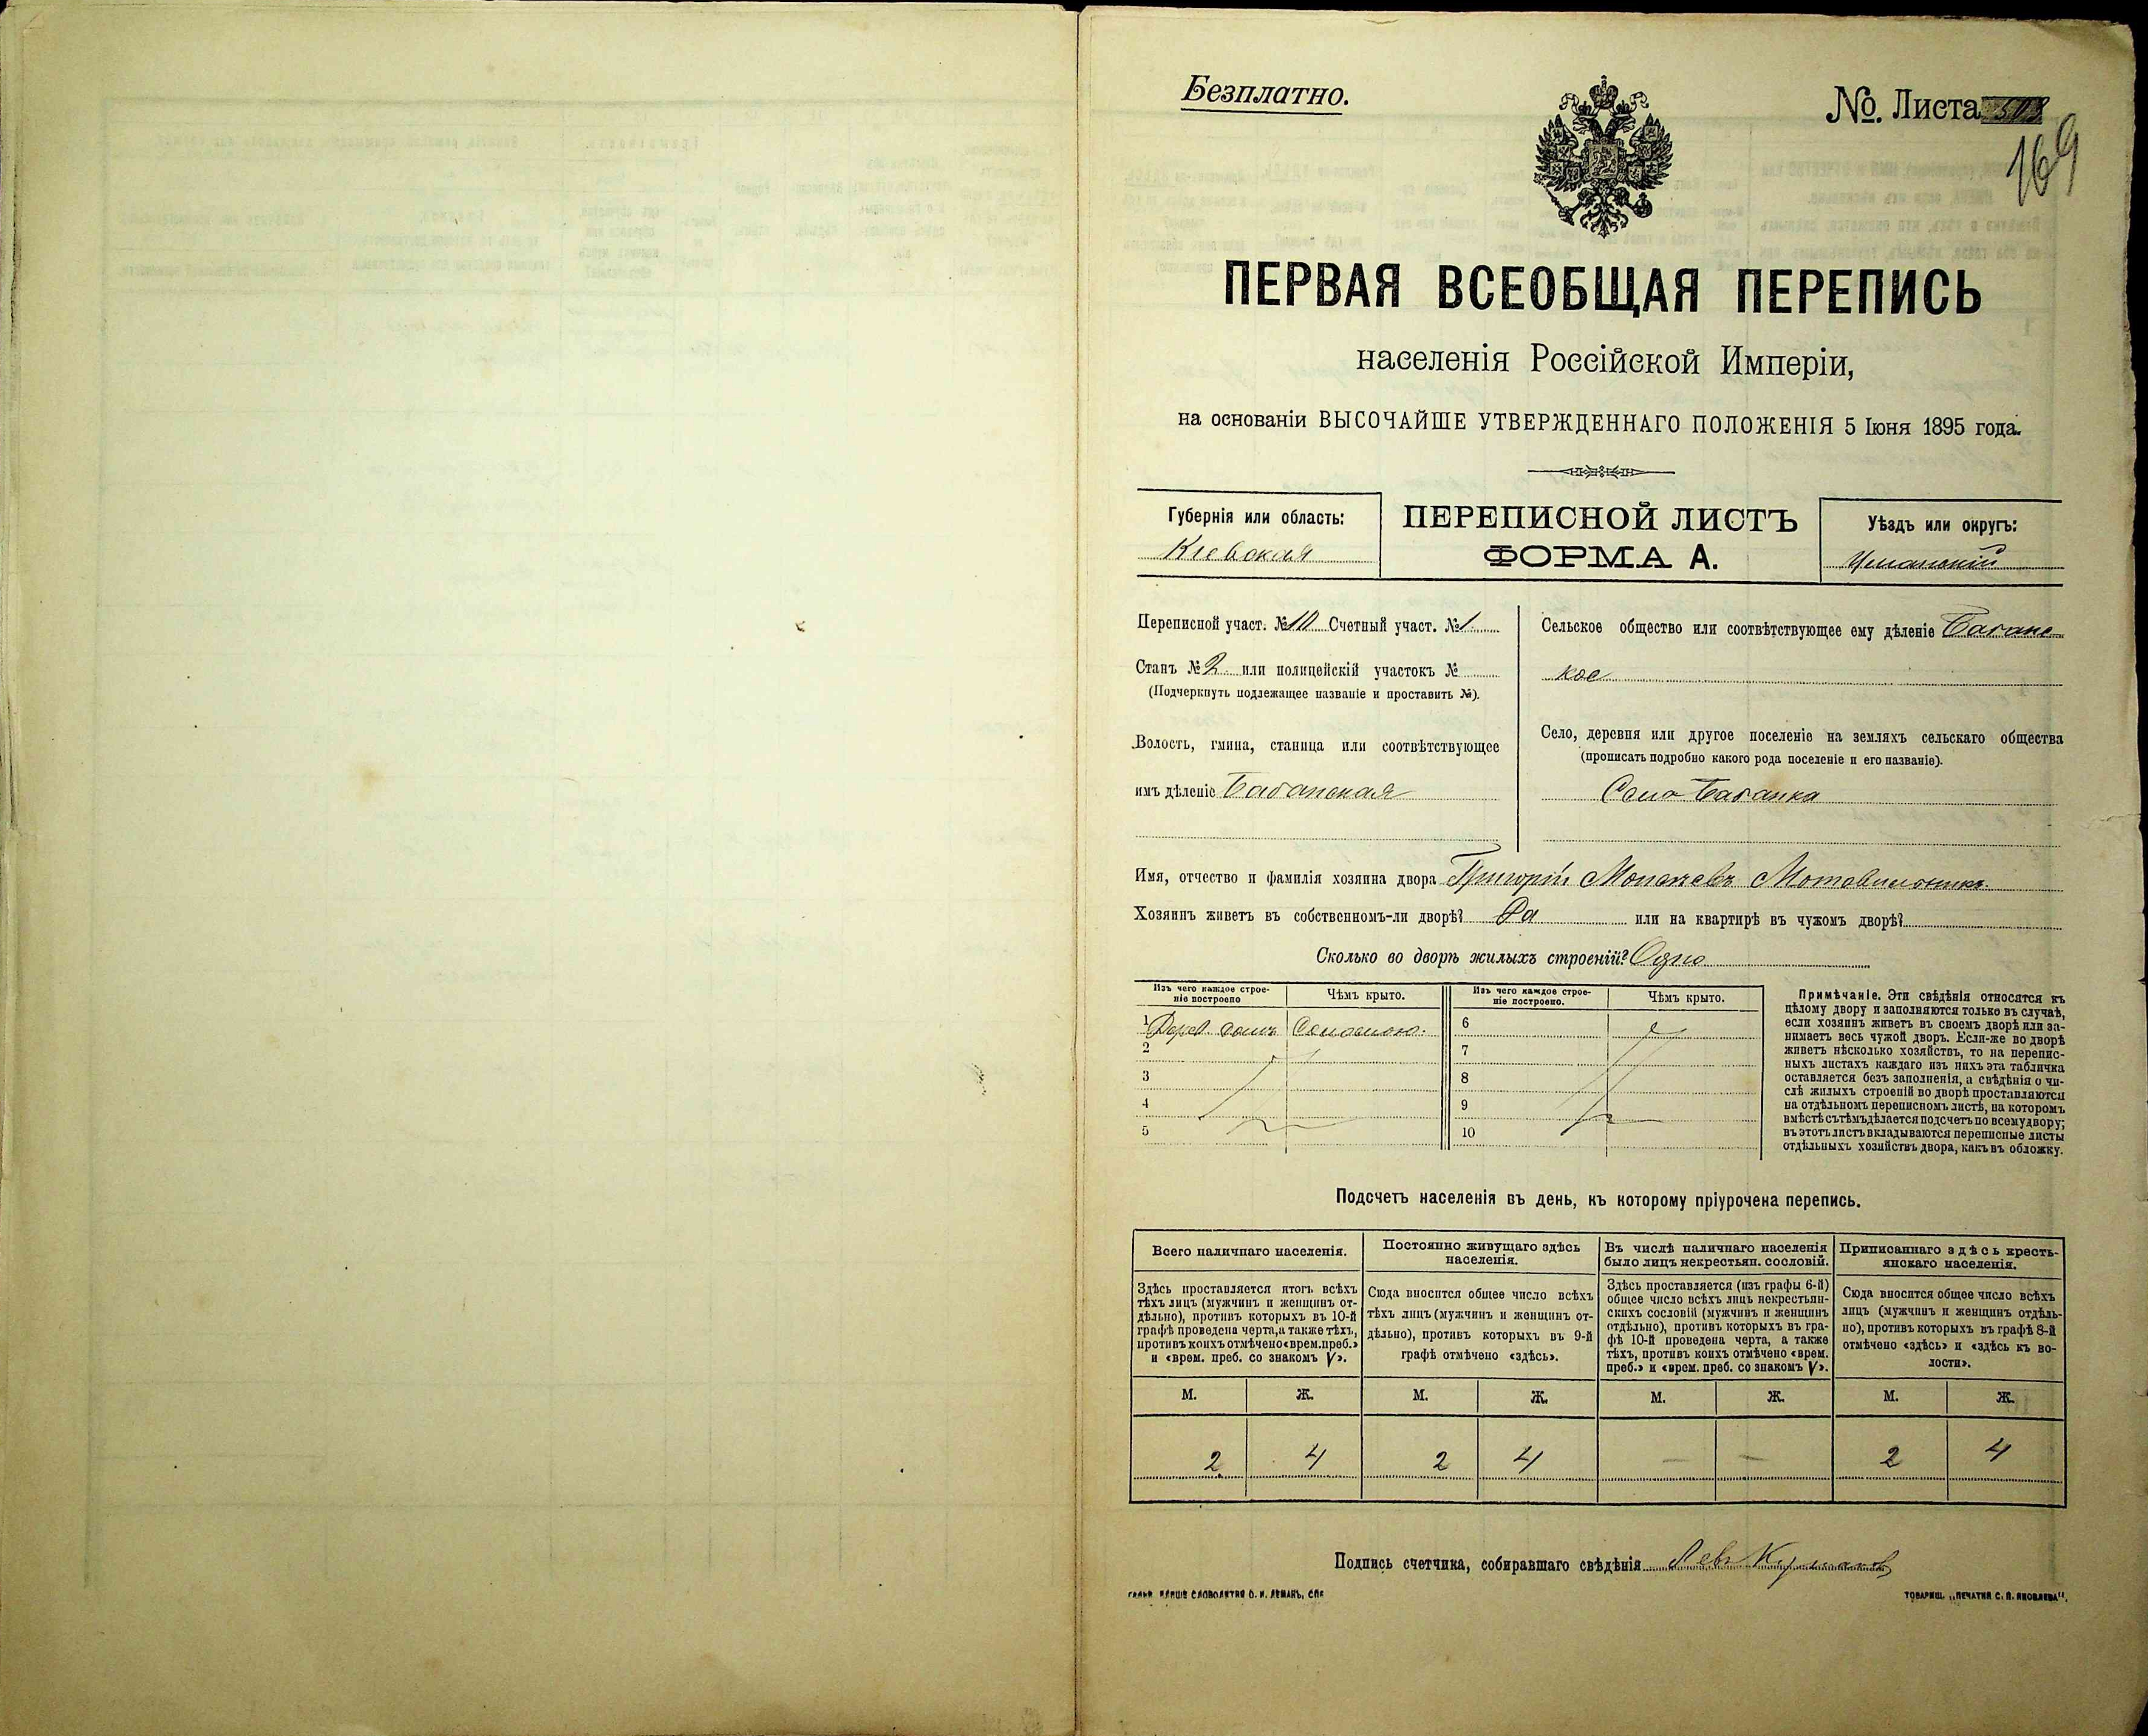 Безплатно.
№. Листа
169
ПЕРВАЯ ВСЕОБЩАЯ ПЕРЕПИСЬ
населенія Россійской Имперіи,
на основаніи ВЫСОЧАЙШЕ УТВЕРЖДЕННАГО ПОЛОЖЕНІЯ 5 Іюня 1895 года.
Губернія или область:
Кіевская
ПЕРЕПИСНОЙ ЛИСТЪ
ФОРМА А.
Уѣздъ или округъ:
Уманскій
Переписной участ. № 10 Счетный участ. № 1.
Станъ № 2 или полицейскій участокъ №
(Подчеркнуть подлежащее названіе и проставить №).
Волость, гмина, станица или соотвѣтствующее
имъ дѣленіе Бабанская
Сельское общество или соотвѣтствующее ему дѣленіе Бабанс
кое
Село, деревня или другое поселеніе на земляхъ сельскаго общества
(прописать подробно какого рода поселеніе и его названіе).
Село Бабанка
Имя, отчество и фамилія хозяина двора Григорій
Хозяинъ живетъ въ собственномъ-ли дворѣ? Да или на квартирѣ въ чужомъ дворѣ?
Сколько во дворѣ жилыхъ строеній? Одно
Изъ чего каждое строе-
ніе построено
Чѣмъ крыто.
Изъ чего каждое строе-
ніе построено.
Чѣмъ крыто.
1 Дерев. домъ Соломою.
2
3
4
5
6
7
8
9
10
Примѣчаніе. Эти свѣдѣнія относятся къ
цѣлому двору и заполняются только въ случаѣ,
если хозяинъ живетъ въ своемъ дворѣ или за-
нимаетъ весь чужой дворъ. Если-же во дворѣ
живетъ нѣсколько хозяйствъ, то на перепис-
ныхъ листахъ каждаго изъ нихъ эта табличка
оставляется безъ заполненія, а свѣдѣнія о чи-
слѣ жилыхъ строеній во дворѣ проставляются
на отдѣльномъ переписномъ листѣ, на которомъ
вмѣстѣ съ тѣмъ дѣлается подсчетъ по всему двору;
въ этотъ листъ вкладываются переписные листы
отдѣльныхъ хозяйствъ двора, какъ въ обложку.
Подсчетъ населенія въ день, къ которому пріурочена перепись.
Всего наличнаго населенія.
Здѣсь проставляется итогъ всѣхъ
тѣхъ лицъ (мужчинъ и женщинъ от-
дѣльно), противъ которыхъ въ 10-й
графѣ проведена черта, а также тѣхъ,
противъ коихъ отмѣчено «врем. преб.»
и «врем. преб. со знакомъ V».
Постоянно живущаго здѣсь
населенія.
Сюда вносится общее число всѣхъ
тѣхъ лицъ (мужчинъ и женщинъ от-
дѣльно), противъ которыхъ въ 9-й
графѣ отмѣчено «здѣсь».
Въ числѣ наличнаго населенія
было лицъ некрестьян. сословій.
Здѣсь проставляется (изъ графы 6-й)
общее число всѣхъ лицъ некрестьян-
скихъ сословій (мужчинъ и женщинъ
отдѣльно), противъ которыхъ въ гра-
фѣ 10-й проведена черта, а также
тѣхъ, противъ коихъ отмѣчено «врем.
преб.» и «врем. преб. со знакомъ V».
Приписаннаго здѣсь кресть-
янскаго населенія.
Сюда вносится общее число всѣхъ
лицъ (мужчинъ и женщинъ отдѣль-
но), противъ которыхъ въ графѣ 8-й
отмѣчено «здѣсь» и «здѣсь къ во-
лости».
М. Ж. М. Ж. М. Ж. М. Ж.
2 4 2 4 — — 2 4
Подпись счетчика, собиравшаго свѣдѣнія Левъ
СЛОВОЛИТНЯ О. И. ЛЕМАНЪ, СПБ
ТОВАРИЩ. „ПЕЧАТНЯ С. П. ЯКОВЛЕВА“.